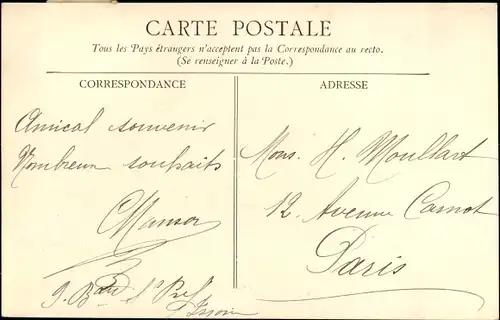 CARTE POSTALE
Tous les Pays étrangers n'acceptent pas la Correspondance au recto.
(Se renseigner à la Poste.)
CORRESPONDANCE
Amical souvenir
Nombreux souhaits
ADRESSE
Mons. H. Moullart
12, Avenue Carnot
Paris